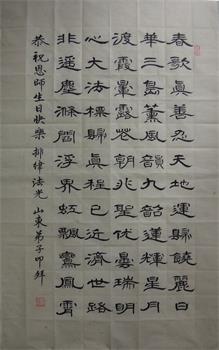 春歌真善忍天地運歸饒麗日
華三島薰風韻九韶蓮輝星月
渡霞暈露花朝兆聖優曇瑞明
心大法標歸真程已近濟世路
非遥塵滌閻浮界虹飄鸞鳳霄
恭祝恩師生日快樂 排律 法光 山東弟子叩拜